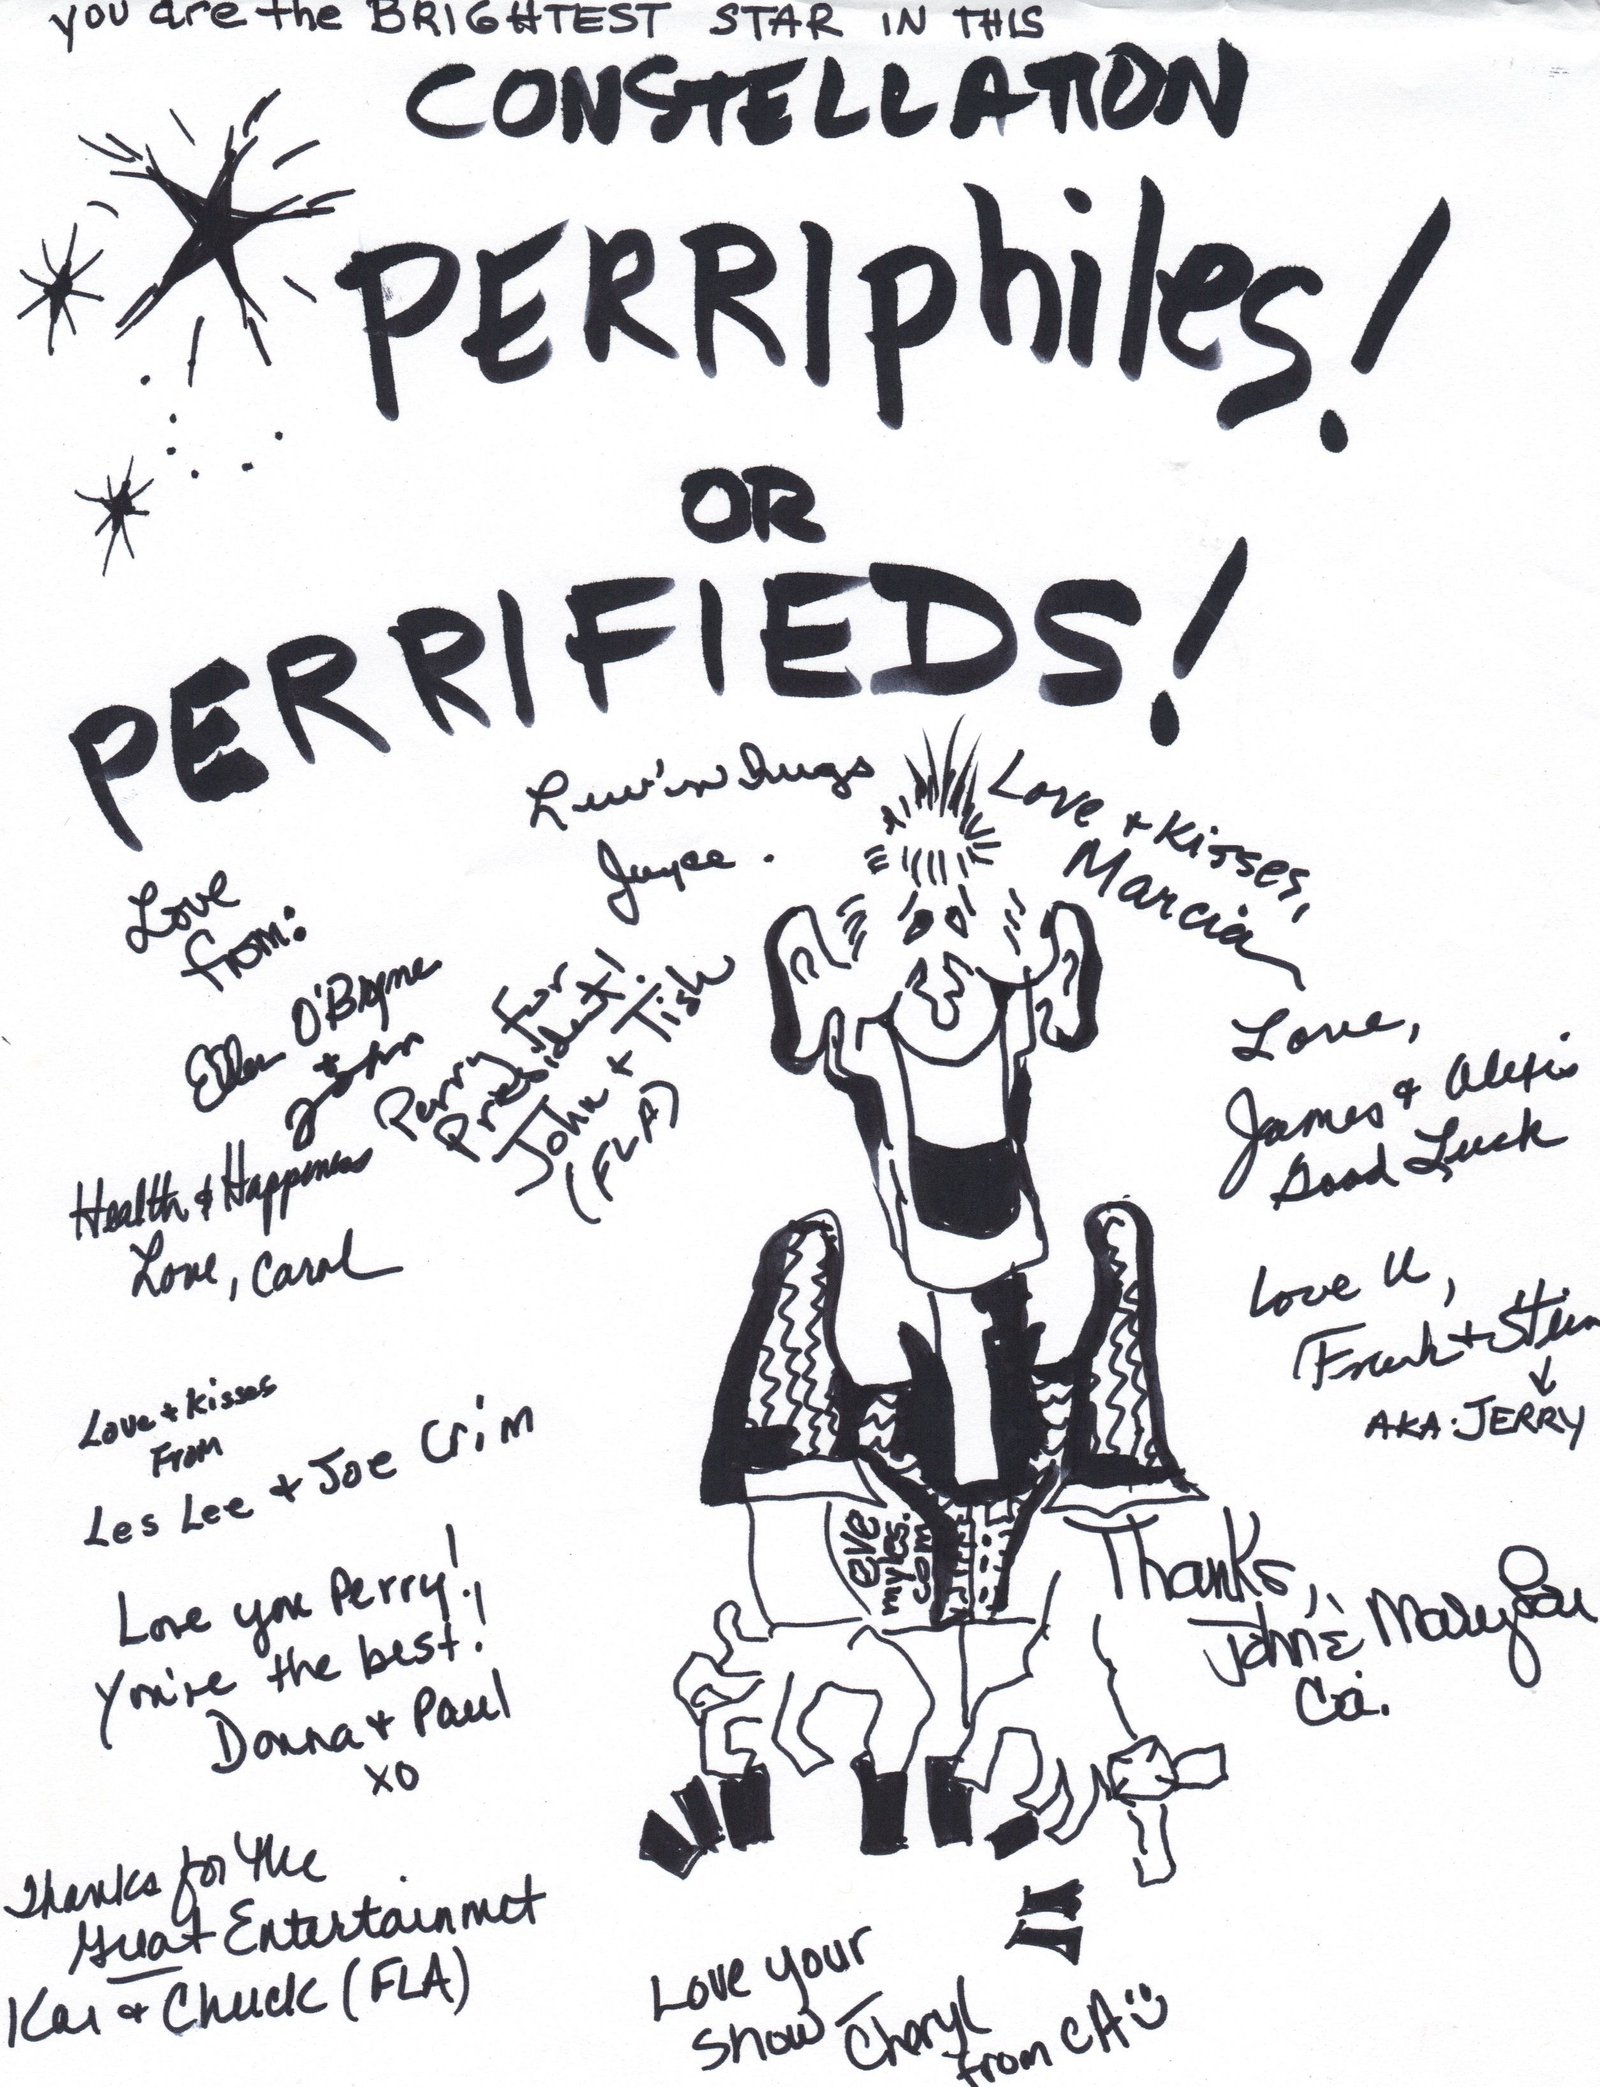 you are the BRIGHTEST STAR IN THIS
CONSTELLATION
PERRIphiles!
OR
PERRIFIEDS!
Luv'n hugs
Joyce.
Love + Kisses,
Marcia
Love
from:
Ellen O'Byrne
+ John
Perry For
President!
John + Tish
(FLA)
Health & Happiness
Love, Carol
Love,
James & Alexis
Good Luck
Love U,
Frank +
AKA: JERRY
Love + Kisses
From
Les Lee + Joe Crim
eve
myles.
com
Thanks,
John & Mary Lou
Ca.
Love you Perry!
You're the best!
Donna + Paul
XO
Thanks for the
Great Entertainmet
+ Chuck (FLA)
Love your
Show Cheryl
from CA